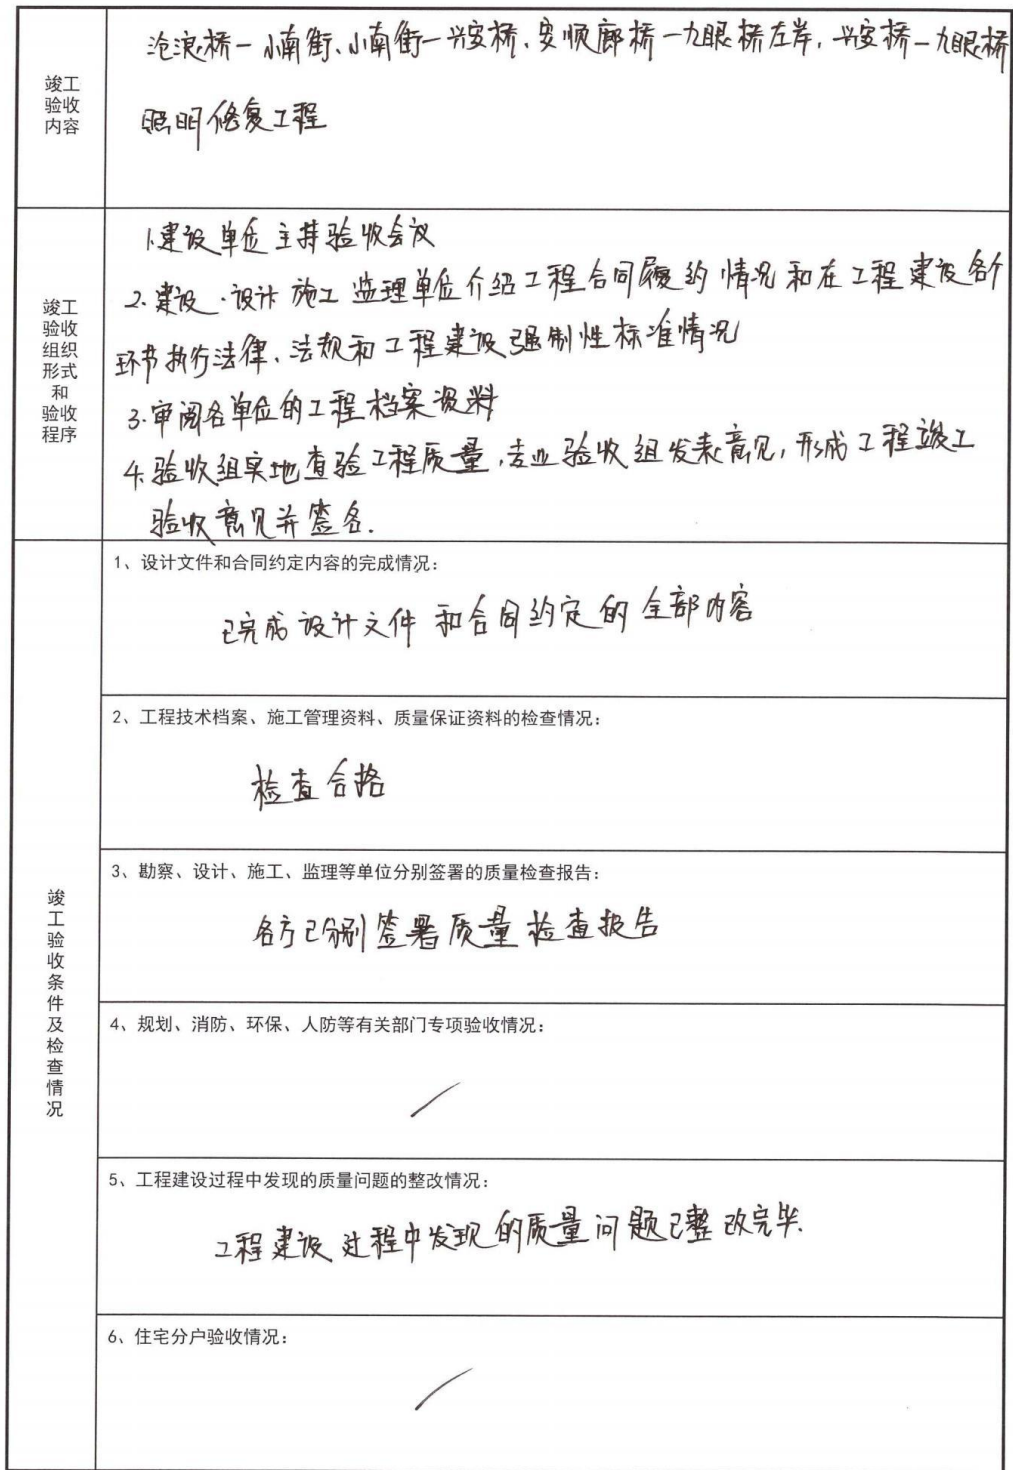 竣工
验收
内容
沧浪桥—小南街、小南街—兴安桥、安顺廊桥—九眼桥左岸,兴安桥—九眼桥
照明修复工程
竣工
验收
组织
形式
和
验收
程序
1.建设单位主持验收会议
2.建设.设计 施工 监理单位介绍工程合同履约情况和在工程建设各个
环节执行法律、法规和工程建设强制性标准情况
3.审阅各单位的工程档案资料
4.验收组实地查验工程质量,专业验收组发表意见,形成工程竣工
验收意见并签名.
竣工验收条件及检查情况
1、设计文件和合同约定内容的完成情况:
已完成设计文件和合同约定的全部内容
2、工程技术档案、施工管理资料、质量保证资料的检查情况:
检查合格
3、勘察、设计、施工、监理等单位分别签署的质量检查报告:
各方已分别签署质量检查报告
4、规划、消防、环保、人防等有关部门专项验收情况:
5、工程建设过程中发现的质量问题的整改情况:
工程建设过程中发现的质量问题已整改完毕.
6、住宅分户验收情况: